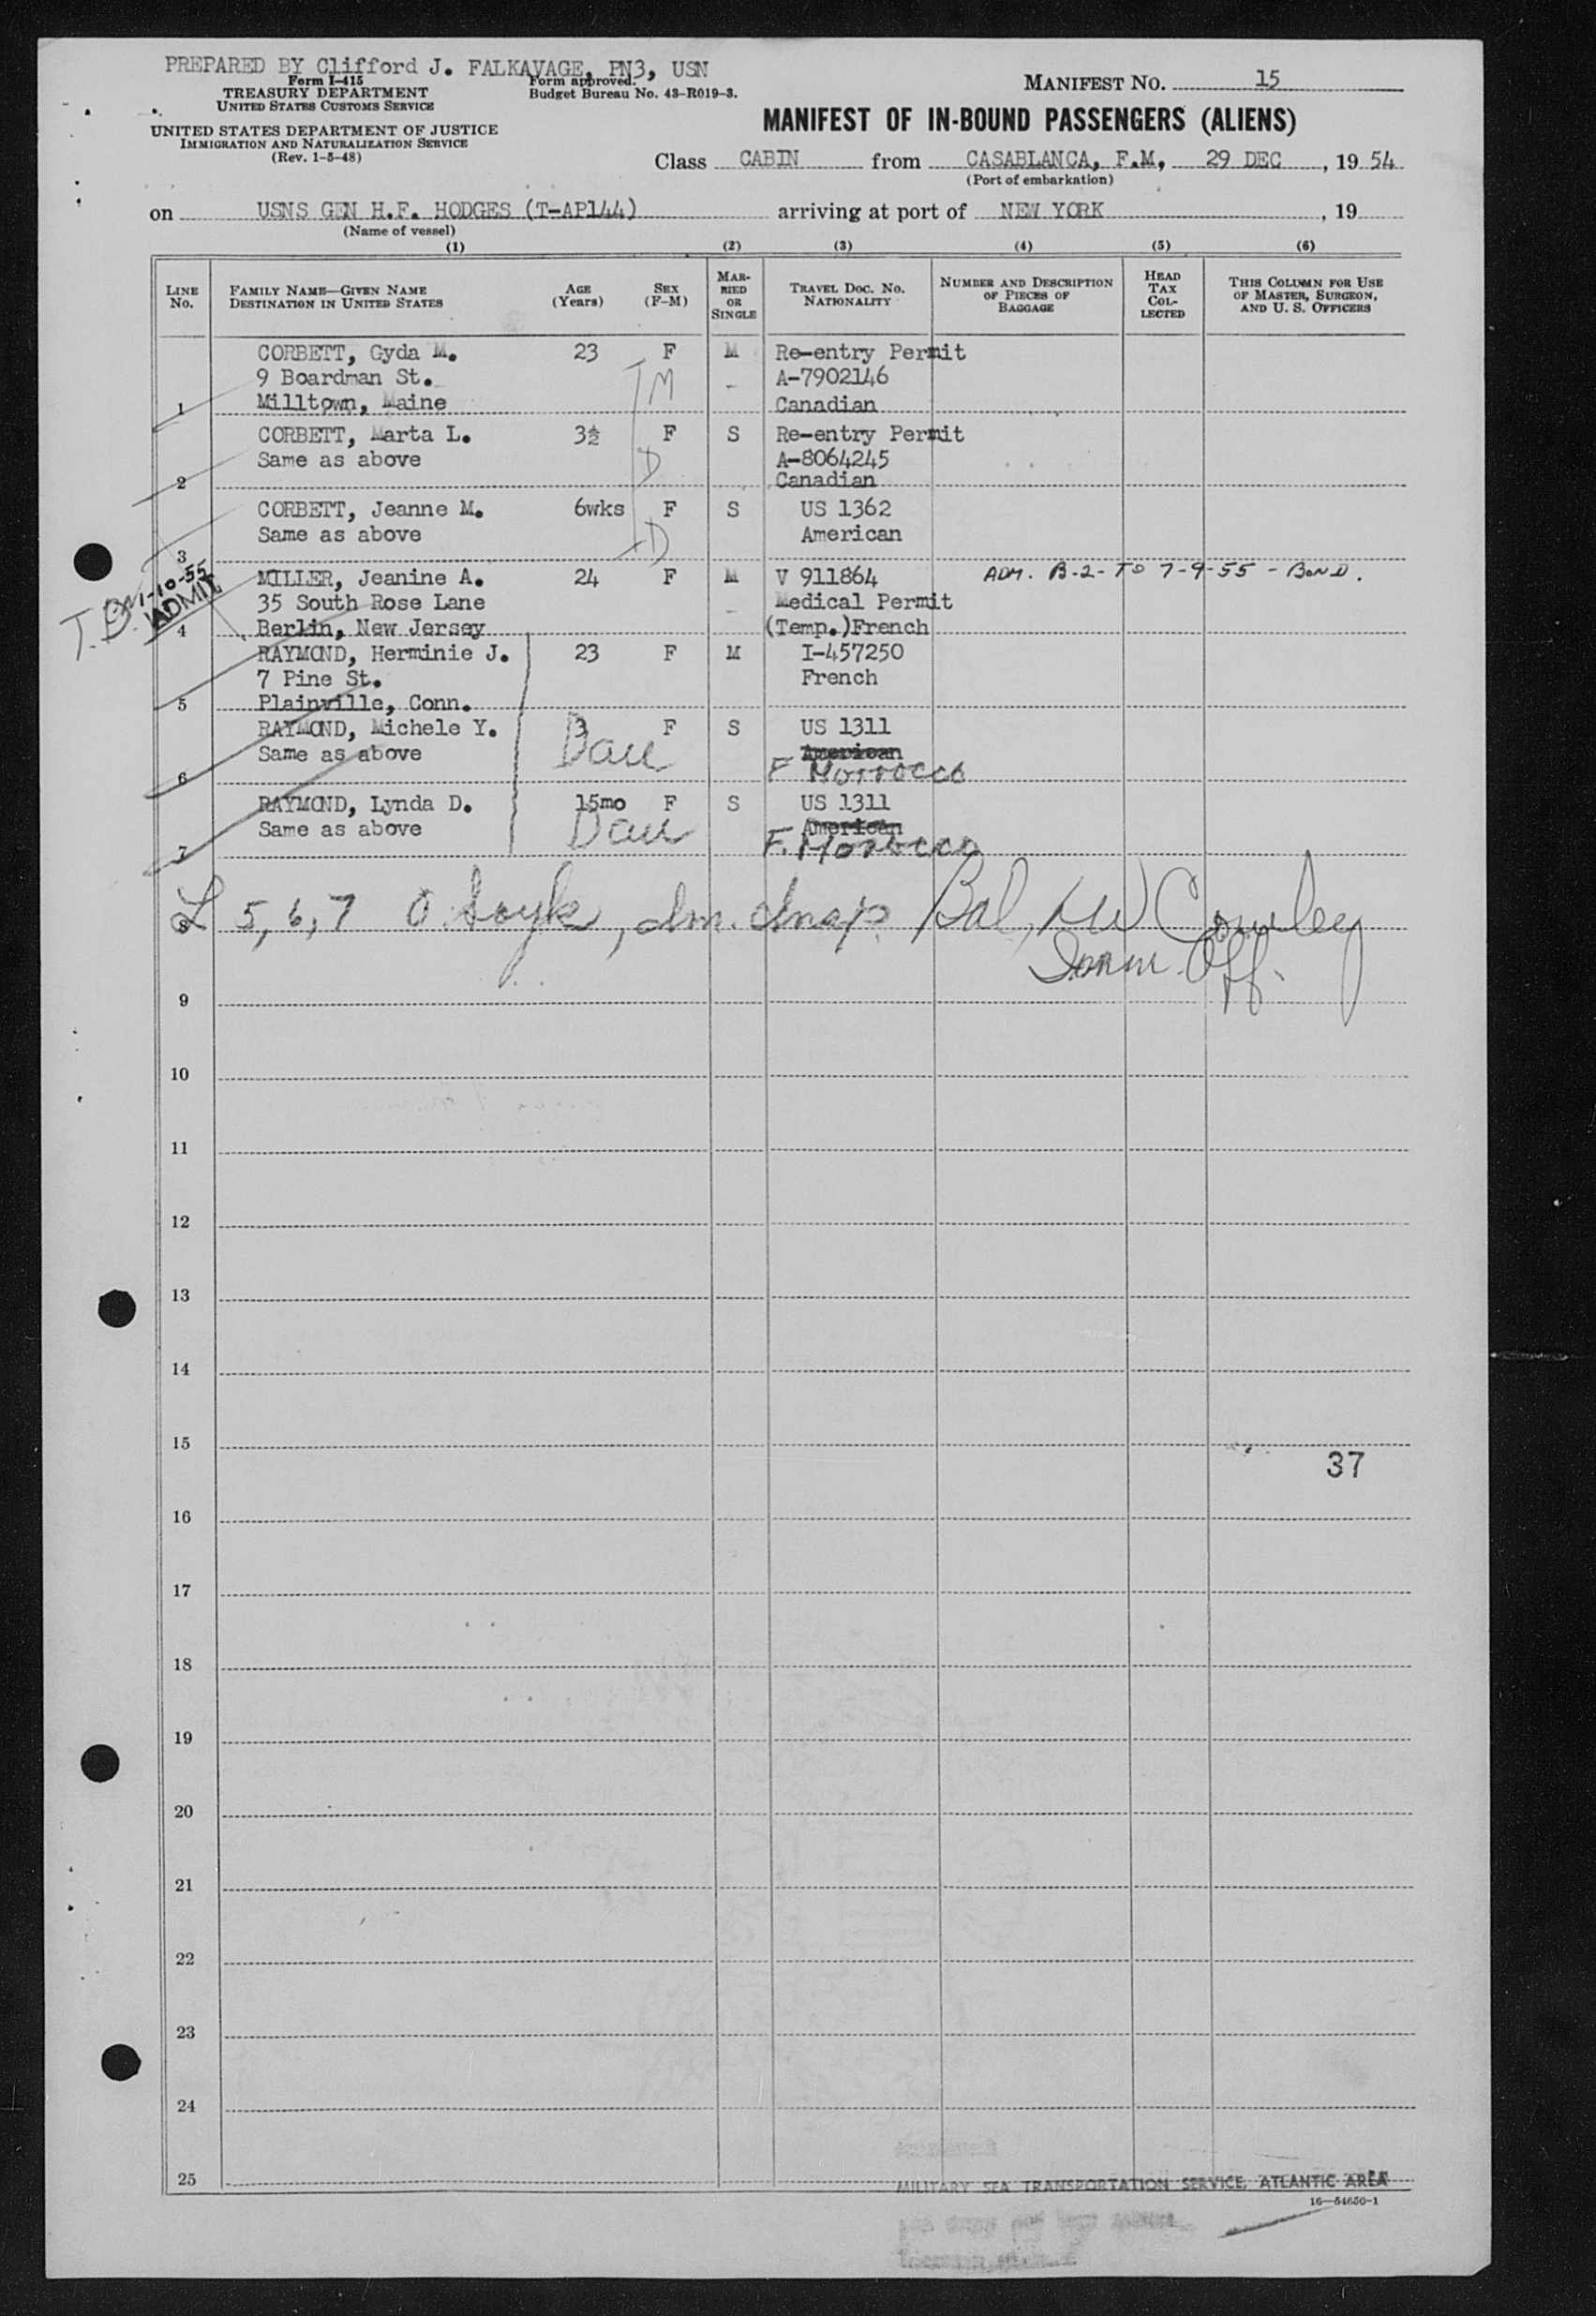 PREPARED BY Clifford J. FALKAVAGE, PN3, USN
Form I-415
TREASURY DEPARTMENT
UNITED STATES CUSTOMS SERVICE
Form approved.
Budget Bureau No. 43-R019-3.
MANIFEST NO. 15
UNITED STATES DEPARTMENT OF JUSTICE
IMMIGRATION AND NATURALIZATION SERVICE
(Rev. 1-5-48)
MANIFEST OF IN-BOUND PASSENGERS (ALIENS)
Class CABIN from CASABLANCA, F.M, 29 DEC, 19 54
(Port of embarkation)
on USNS GEN H.F. HODGES (T-AP144) arriving at port of NEW YORK, 19
(Name of vessel)
(1) (2) (3) (4) (5) (6)
LINE No. FAMILY NAME—GIVEN NAME DESTINATION IN UNITED STATES AGE (Years) SEX (F-M) MARRIED OR SINGLE TRAVEL DOC. NO. NATIONALITY NUMBER AND DESCRIPTION OF PIECES OF BAGGAGE HEAD TAX COLLECTED THIS COLUMN FOR USE OF MASTER, SURGEON, AND U. S. OFFICERS
CORBETT, Gyda M. 23 F M Re-entry Permit
9 Boardman St. M A-7902146
1 Milltown, Maine Canadian
CORBETT, Marta L. 3½ F S Re-entry Permit
Same as above D A-8064245
2 Canadian
CORBETT, Jeanne M. 6wks F S US 1362
Same as above D American
3
1-10-55 MILLER, Jeanine A. 24 F M V 911864 ADM. B-2- TO 7-9-55 - BOND.
ADMIT 35 South Rose Lane Medical Permit
4 Berlin, New Jersey (Temp.)French
RAYMOND, Herminie J. 23 F M I-457250
7 Pine St. French
5 Plainville, Conn.
RAYMOND, Michele Y. 3 F S US 1311
Same as above Dau American
6 F Morrocco
RAYMOND, Lynda D. 15mo F S US 1311
Same as above Dau American
7 F. Morocco
8 5, 6, 7 Cowley
Off.
9
10
11
12
13
14
15
37
16
17
18
19
20
21
22
23
24
25
MILITARY SEA TRANSPORTATION SERVICE, ATLANTIC AREA
16—54650-1